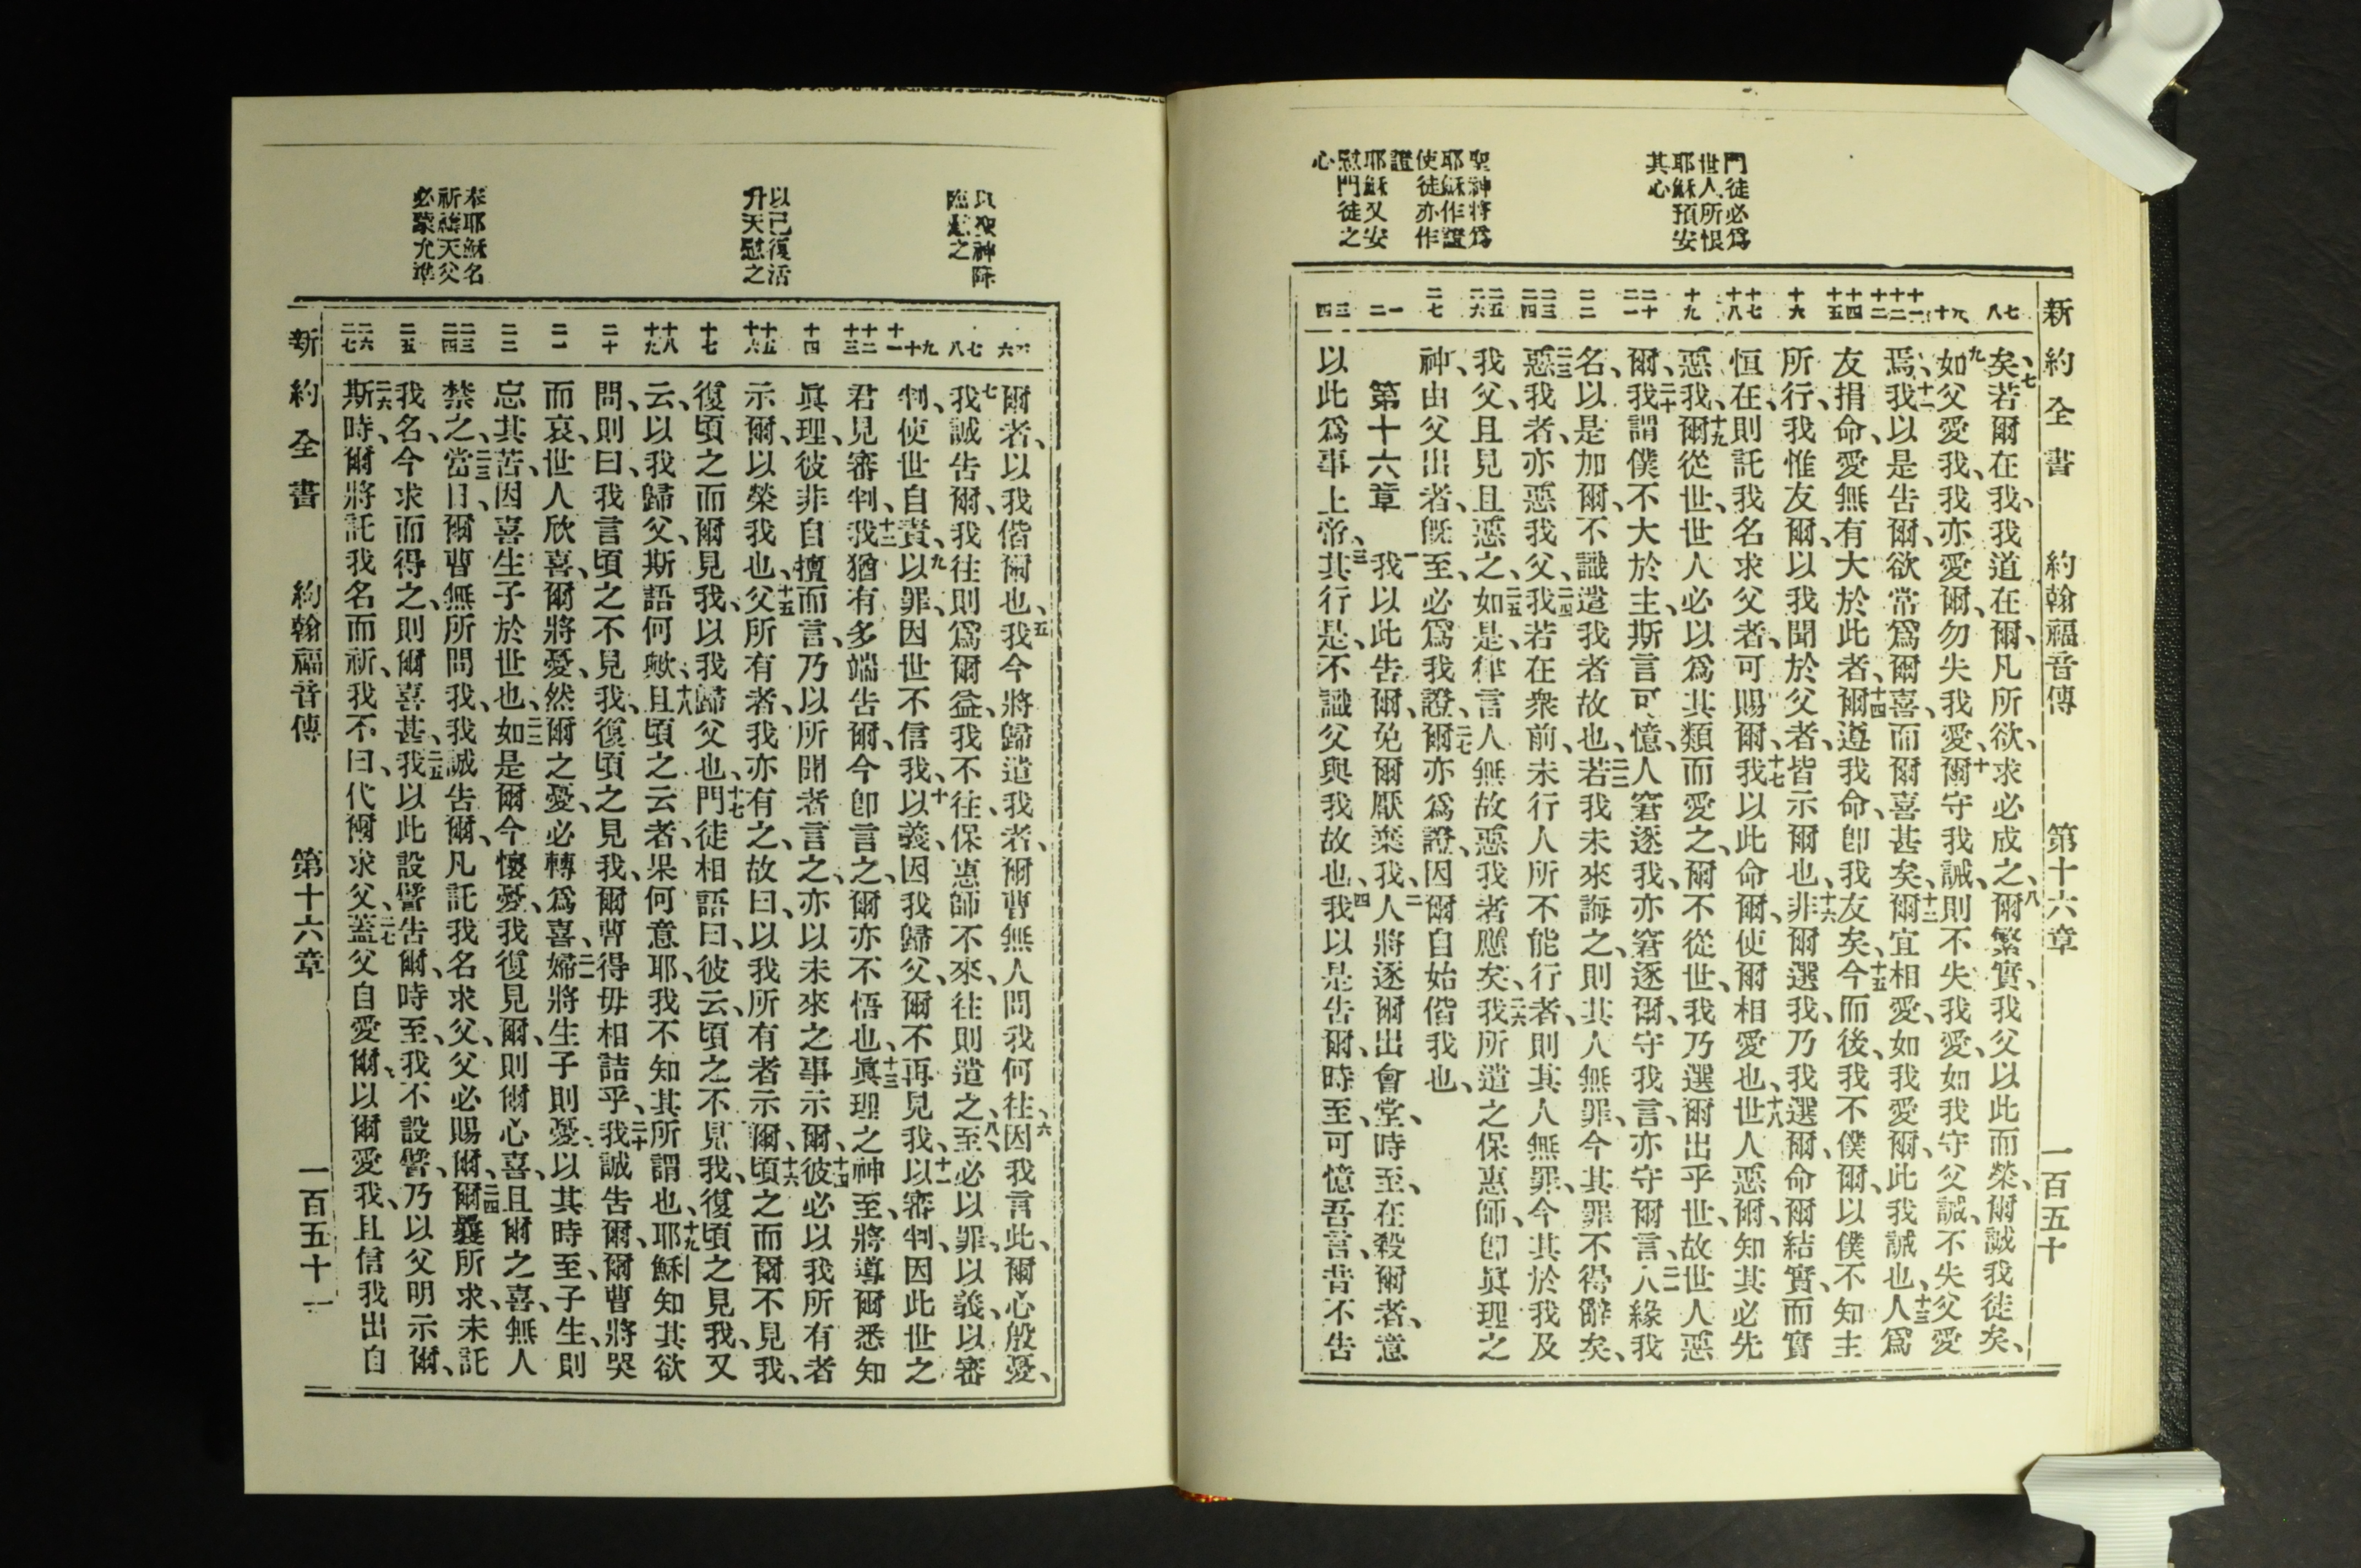 新約全書 約翰福音傳 第十六章 一百五十
門徒必爲
世人所恨
耶穌預安
其心
聖神將爲
耶穌作證
使徒亦作
證
耶穌又安
慰門徒之
心
七 八
九 十
十一 十二
十三
十四 十五
十六
十七 十八
十九
二十 二一
二二
二三 二四
二五 二六
二七
一 二
三 四
矣、七若爾在我、我道在爾、凡所欲、求必成之、八爾繁實、我父以此而榮、爾誠我徒矣、
九如父愛我、我亦愛爾、勿失我愛、十爾守我誡、則不失我愛、如我守父誡、不失父愛
焉、十一我以是告爾、欲常爲爾喜、而爾喜甚矣、十二爾宜相愛、如我愛爾、此我誡也、十三人爲
友捐命、愛無有大於此者、十四爾遵我命、卽我友矣、十五今而後、我不僕爾、以僕不知主
所行、我惟友爾、以我聞於父者、皆示爾也、十六非爾選我、乃我選爾、命爾結實、而實
恒在、則託我名求父者、可賜爾、十七我以此命爾、使爾相愛也、十八世人惡爾、知其必先
惡我、十九爾從世、世人必以爲其類而愛之、爾不從世、我乃選爾出乎世、故世人惡
爾、二十我謂僕不大於主、斯言可憶、人窘逐我、亦窘逐爾、守我言、亦守爾言、二一人緣我
名、以是加爾、不識遣我者故也、二二若我未來誨之、則其人無罪、今其罪不得辭矣、
二三惡我者、亦惡我父、二四我若在衆前、未行人所不能行者、則其人無罪、今其於我及
我父、且見且惡之、二五如是、律言人無故惡我者應矣、二六我所遣之保惠師、卽眞理之
神、由父出者、旣至、必爲我證、二七爾亦爲證、因爾自始偕我也、
第十六章 一我以此告爾、免爾厭棄我、二人將逐爾出會堂、時至、在殺爾者、意
以此爲事上帝、三其行是、不識父與我故也、四我以是告爾、時至、可憶吾言、昔不告
以聖神降
臨慰之
以已復活
升天慰之
奉耶穌名
祈禱天父
必蒙允準
五 六
七 八
九 十 十一
十二 十三
十四
十五 十六
十七
十八 十九
二十
二一
二二
二三 二四
二五
二六 二七
爾者、以我偕爾也、五我今將歸遣我者、爾曹無人問我何往、六因我言此、爾心殷憂、
七我誠告爾、我往則爲爾益、我不往、保惠師不來、往則遣之、八至、必以罪、以義、以審
判、使世自責、九以罪、因世不信我、十以義、因我歸父、爾不再見我、十一以審判、因此世之
君見審判、十二我猶有多端告爾、今卽言之、爾亦不悟也、十三眞理之神至、將導爾悉知
眞理、彼非自擅而言、乃以所聞者言之、亦以未來之事示爾、十四彼必以我所有者
示爾、以榮我也、十五父所有者、我亦有之、故曰、以我所有者示爾、十六頃之而爾不見我、
復頃之而爾見我、以我歸父也、十七門徒相語曰、彼云、頃之不見我、復頃之見我、又
云、以我歸父、斯語何歟、十八且頃之云者、果何意耶、我不知其所謂也、十九耶穌知其欲
問、則曰、我言頃之不見我、復頃之見我、爾曹得毋相詰乎、二十我誠告爾、爾曹將哭
而哀、世人欣喜、爾將憂、然爾之憂、必轉爲喜、二一婦將生子則憂、以其時至、子生、則
忘其苦、因喜生子於世也、二二如是爾今懷憂、我復見爾、則爾心喜、且爾之喜、無人
禁之、二三當日、爾曹無所問我、我誠告爾、凡託我名求父、父必賜爾、二四爾曩所求、未託
我名、今求而得之、則爾喜甚、二五我以此設譬告爾、時至、我不設譬、乃以父明示爾、
二六斯時、爾將託我名而祈、我不曰、代爾求父、二七蓋父自愛爾、以爾愛我、且信我出自
新約全書 約翰福音傳 第十六章 一百五十一